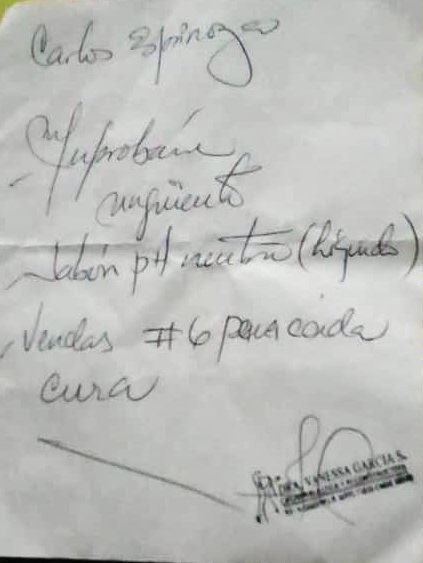 Carlos Espinoza
- Muprobán
ungüento
- Jabón pH neutro (líquido)
- Vendas #6 para cada
cura
DRA. VANESSA GARCIA S.